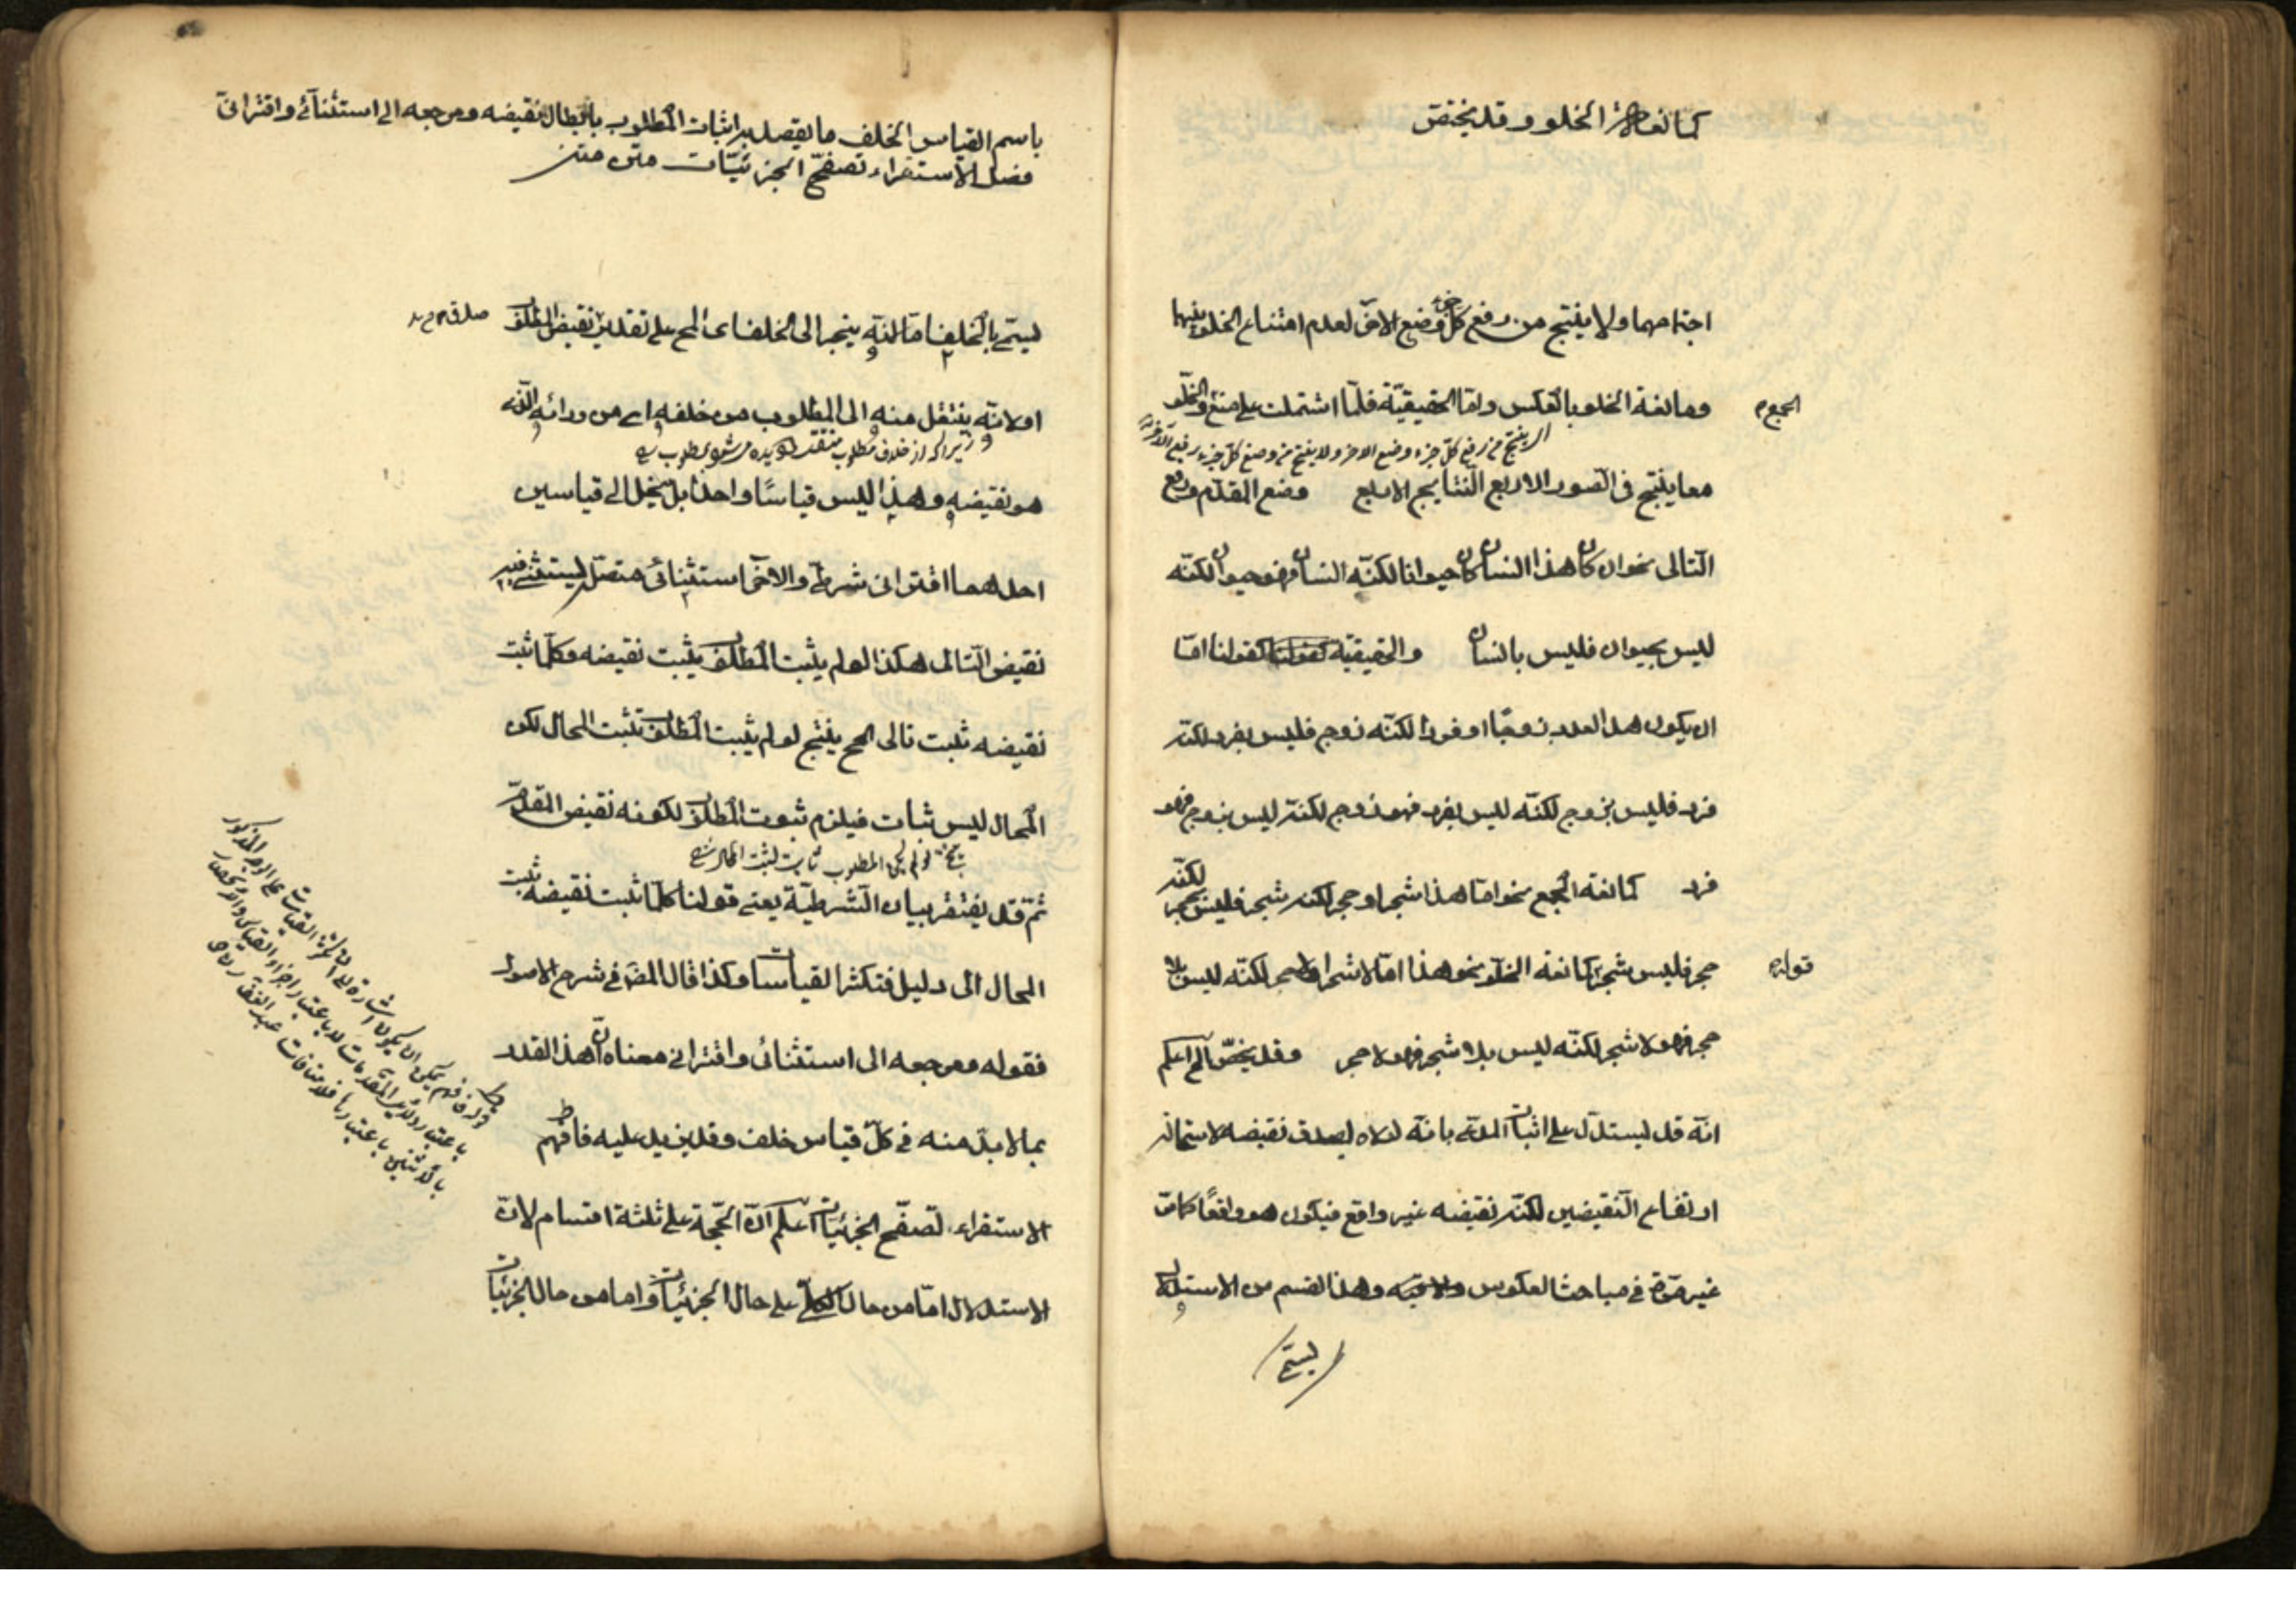 كمانعة الخلو وقد يختص
اجتماعهما ولا ينتج من رفع كل جزء وضع الاخر لعدم امتناع الخلو بينهما
ومانعة الخلو بالعكس واما الحقيقيّة فلمّا اشتملت على منع الخلوّ
الجمع و
ينتج من رفع كل جزء وضع الاخر ولا ينتج من وضع كل جزء رفع الاخر
معا ينتج في الصور الاربع النتايج الاربع وضع المقدّم ورفع
التالى نحو ان كان هذا انسان كان حيوانا لكنّه انسان فهو حيوان لكنّه
ليس بحيوان فليس بانسان والحقيقيّة كقولنا امّا
ان يكون هذا العدد زوجًا او فردا لكنّه زوج فليس بفرد لكنّه
فرد فليس بزوج لكنّه ليس بفرد فهو زوج لكنّه ليس بزوج فهو
فرد كمانعة الجمع نحو امّا هذا شجر او حجر لكنّه شجر فليس بحجر لكنّه
حجر فليس بشجر كمانعة الخلوّ نحو هذا امّا لا شجر او لا حجر لكنّه ليس بلا
قوله
حجر فهو لا شجر لكنّه ليس بلا شجر فهو لا حجر وقد يختصّ الخ اعلم
انّه قد يستدلّ على اثبات المدّعى بانّه لولاه لصدق نقيضه لاستحالة
ارتفاع النّقيضين لكنّه نقيضه غير واقع فيكون هو واقعًا كما مرّ
غير مرّة في مباحث العكوس والاقيسه وهذا القسم من الاستدلال
يسمّى
باسم القياس الخلف ما يقصد به اثبات المطلوب بابطال نقيضه ومرجعه الى استثنآئى واقترانىّ
فصل الاستقراء تصفّح الجزئيّات متن متن
يسمّى بالخلف امّا لانّه ينجر الى الخلف اى المح على تقدير نقيض المطلوب
او لانّه ينتقل منه الى المطلوب من خلفه اى من ورائه الّذى
هو نقيضه وهذا ليس قياسًا واحدا بل ينحلّ الى قياسين
احدهما اقترانى شرطىّ والاخر استثنائى متصّل يستثنى فيه
نقيض التّالى هكذا لو لم يثبت المطلوب يثبت نقيضه وكلّما ثبت
نقيضه ثبت تالى المح ينتج لو لم يثبت المطلوب ثبت المحال لكن
المحال ليس بثابت فيلزم ثبوت المطلوب لكونه نقيض المقدّم
ثمّ قد يفتقر بيان الشّرطيّة يعنى قولنا كلّما ثبت نقيضه ثبت
المحال الى دليل فتكثر القياسات وكذا قال المصّ في شرح الاصول
فقوله ومرجعه الى استثنائى واقترانى معناه انّ هذا القدر
ممّا لا بدّ منه في كلّ قياس خلف وقد يزيد عليه فافهم
الاستقراء تصفّح الجزئيّات اعلم انّ الحجّة على ثلثة اقسام لانّ
الاستدلال امّا من حال الكلّى على حال الجزئيّات واما من حال الجزئيّات